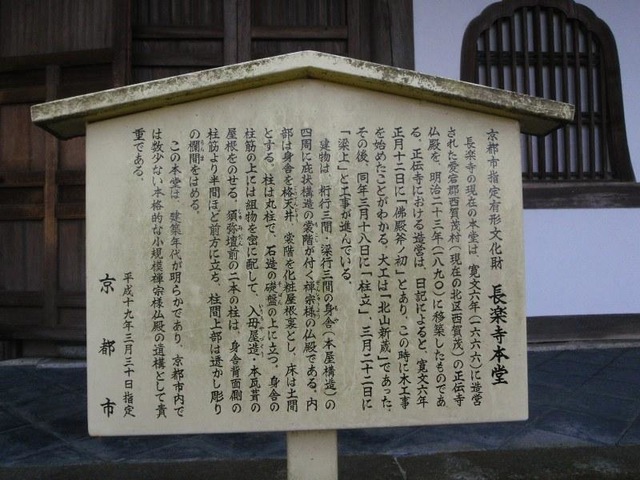 京都市指定有形文化財　長楽寺本堂
長楽寺の現在の本堂は、寛文六年(一六六六)に造営
された愛宕郡西賀茂村(現在の北区西賀茂)の正伝寺
仏殿を、明治二十三年(一八九〇)に移築したものであ
る。正伝寺における造営は、日記によると、寛文六年
正月十二日に「佛殿斧ノ初」とあり、この時に木工事
を始めたことがわかる。大工は「北山新蔵」であった。
その後、同年三月十八日に「柱立」、三月二十二日に
「梁上」と工事が進んでいる。
建物は、桁行三間・梁行三間の身舎(本屋構造)の
四周に庇状構造の裳階が付く禅宗様の仏殿である。内
部は身舎を格天井、裳階を化粧屋根裏とし、床は土間
とする。柱は丸柱で、石造の礎盤の上に立つ。身舎の
柱筋の上には組物を密に配して、入母屋造・本瓦葺の
屋根をのせる。須弥壇前の二本の柱は、身舎背面側の
柱筋より半間ほど前方に立ち、柱間上部は透かし彫り
の欄間をはめる。
この本堂は、建築年代が明らかであり、京都市内で
は数少ない本格的な小規模禅宗様仏殿の遺構として貴
重である。
平成十九年三月三十日指定
京都市